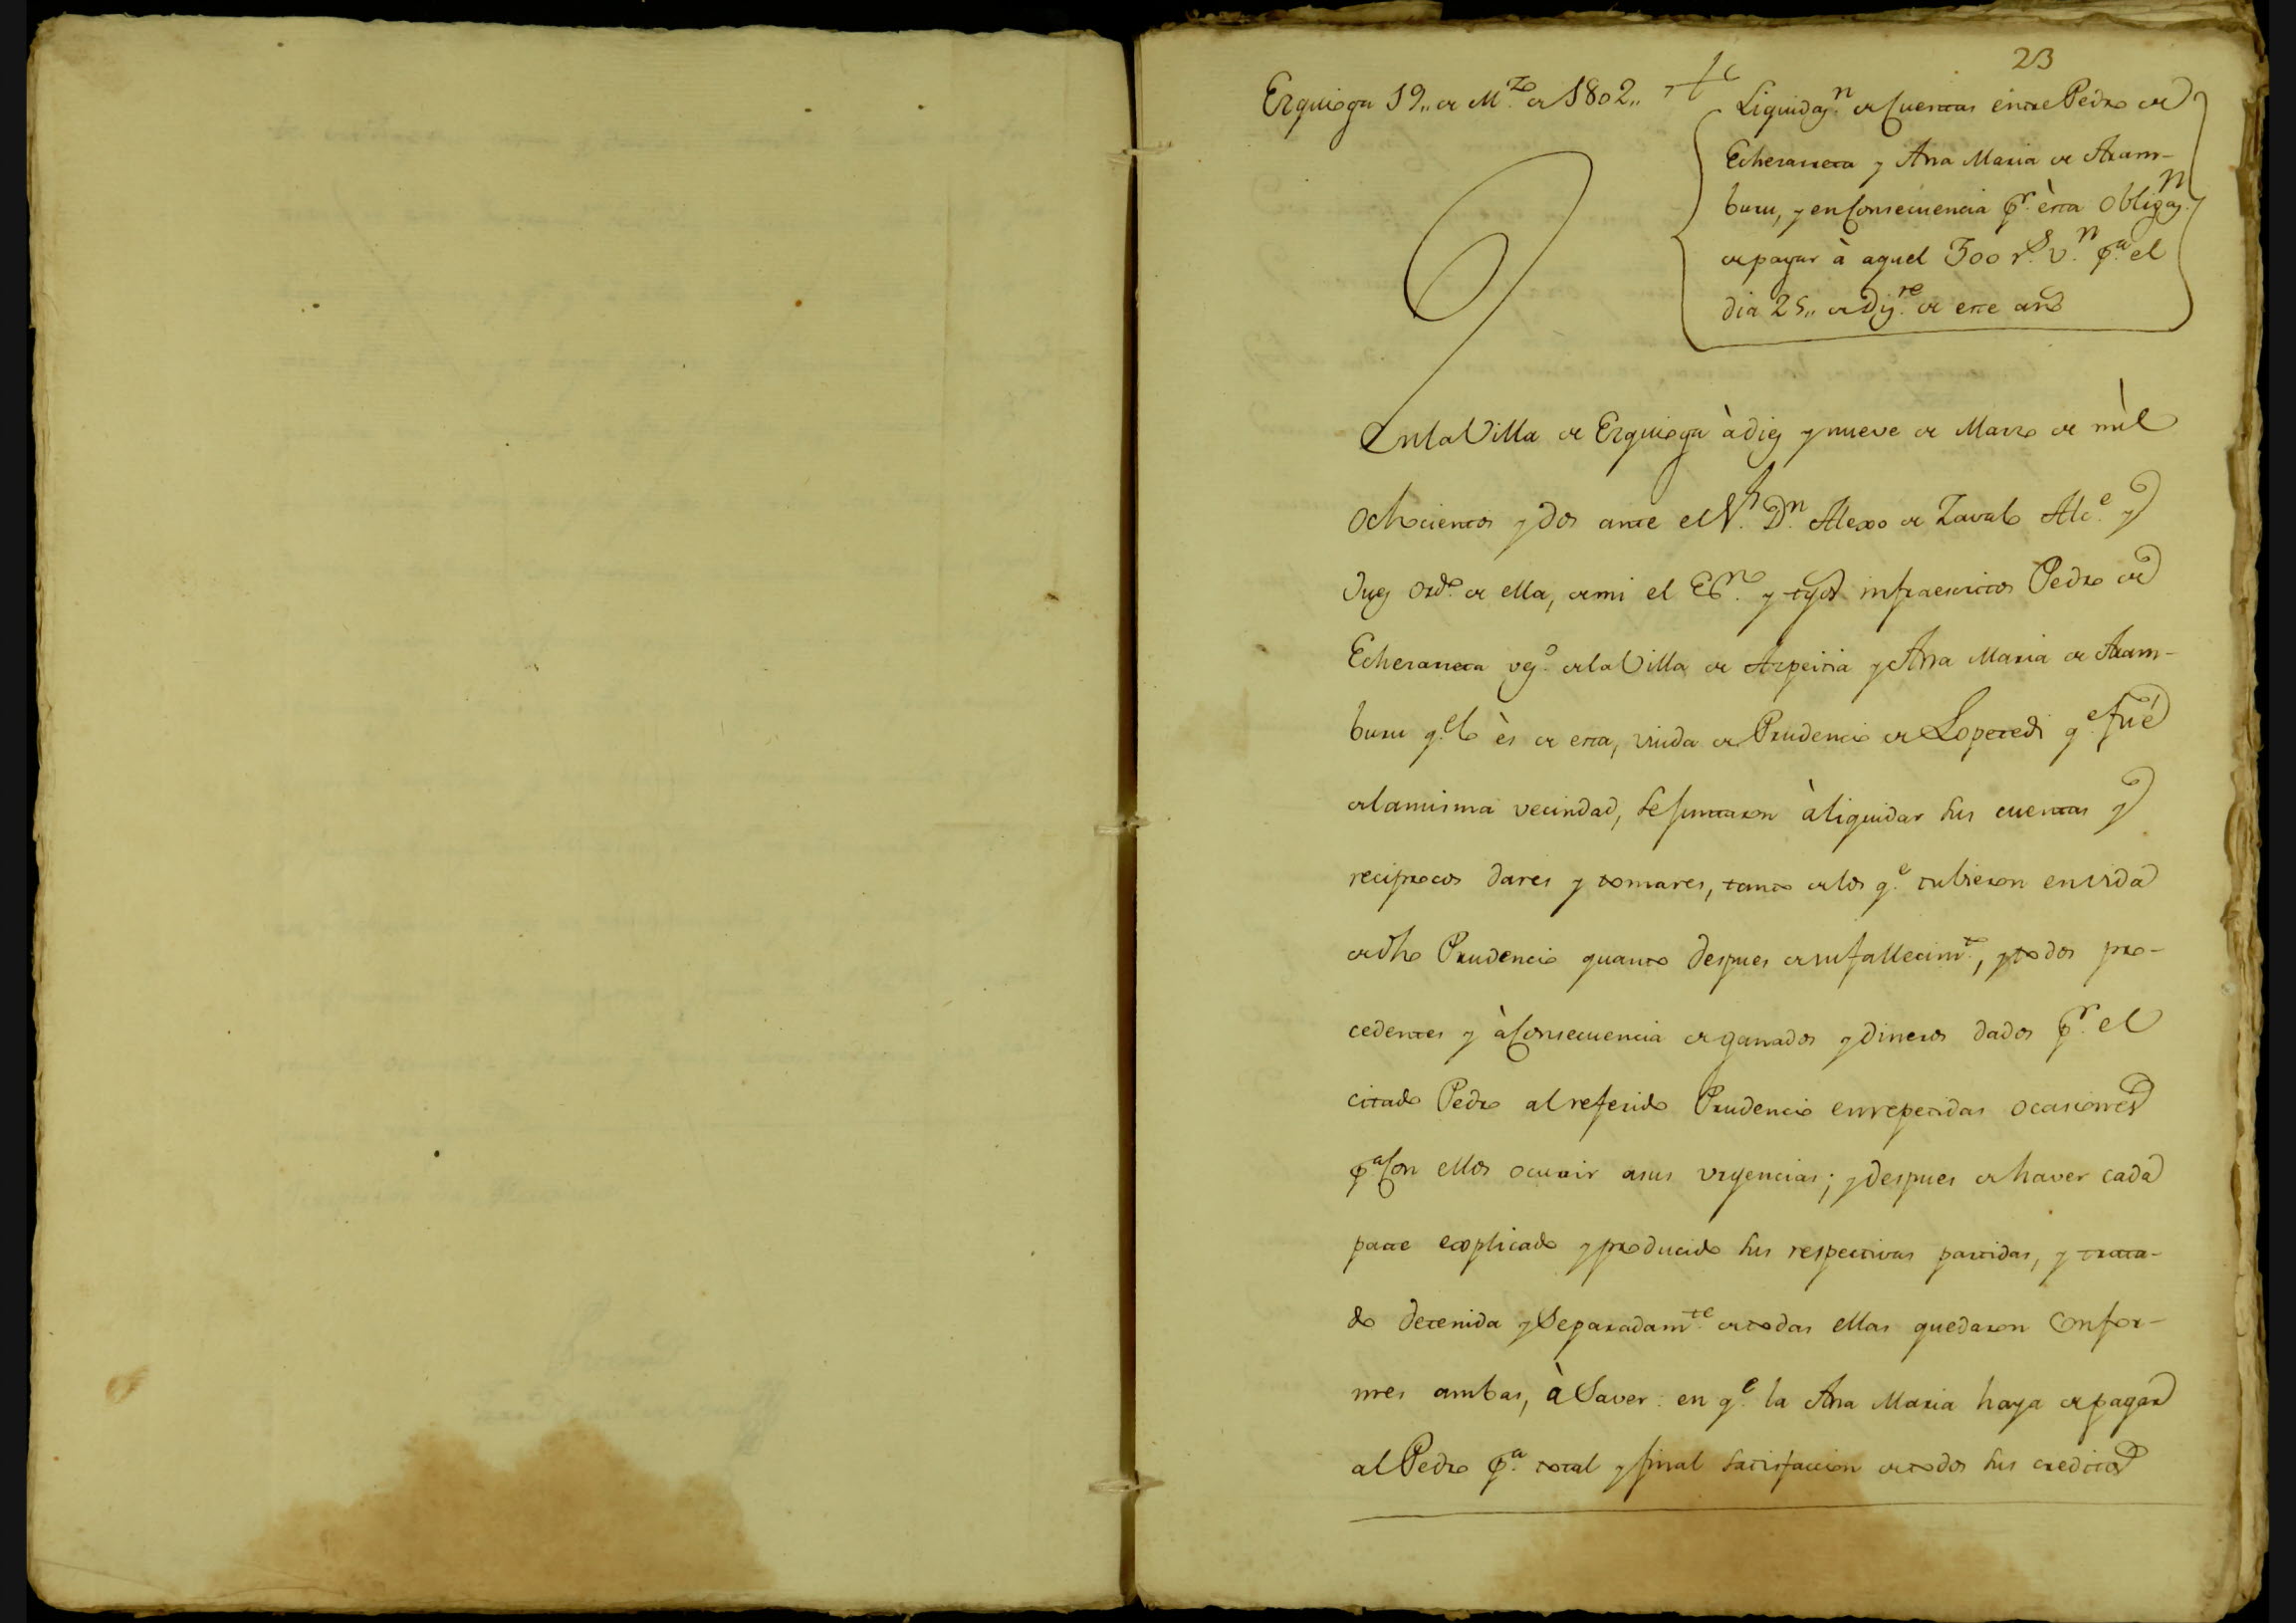 23
Ezquioga 19,, de M.zo de 1802,,
Liquidaz.n de Cuentas entre Pedro de
Echezarreta y Ana Maria de Aram-
buru, y en Consecuencia p.r èsta Obligaz.n
de pagar à aquel 300 r.s v.n p.a el
dia 25,, de Diz.re de este año
En la Villa de Ezquioga à diez y nueve de Marzo de mìl
Ochocientos y dos ante el S.r D.n Alexo de Zavalo Alc.e y
Juez Ord.o de ella, de mi el Es.no y tgos infraescritos Pedro de
Echezarreta vez.o de la Villa de Azpeitia y Ana Maria de Aram-
buru q.e lo ès de esta, viuda de Prudencio de Lopetedi q.e fué
de la misma vecindad, se juntaron à liquidar sus cuentas y
reciprocos dares y tomares, tanto de los q.e tubieron en vida
de dho Prudencio quanto despues de su fallecim.to, y todos pro-
cedentes y à Consecuencia de ganados y dineros dados p.r el
citado Pedro al referido Prudencio en repetidas ocasiones
p.a Con ellos ocurrir a sus urgencias; y despues de haver cada
parte explicado y producido sus respectivas partidas, y trata-
do detenida y Separadam.te de todas ellas quedaron Confor-
mes ambas, à Saver: en q.e la Ana Maria haya de pagar
al Pedro p.a total y final satisfaccion de todos sus creditos